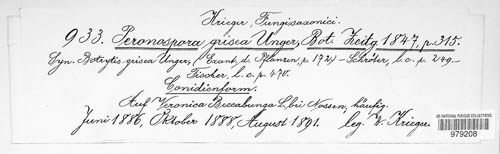 Krieger, Fungi saxonici.
933. Peronospora grisea Unger, Bot. Zeitg. 1847, p. 315.
Syn. Botrytis grisea Unger, (Exant. d. Pflanzen p. 172) – Schröter, l. c. p. 249. –
Fischer, l. c. p. 470.
Conidienform.
Auf Veronica Beccabunga L. bei Nossen, häufig.
Juni 1886, Oktober 1888, August 1891. leg. W. Krieger.
US NATIONAL FUNGUS COLLECTIONS
979208